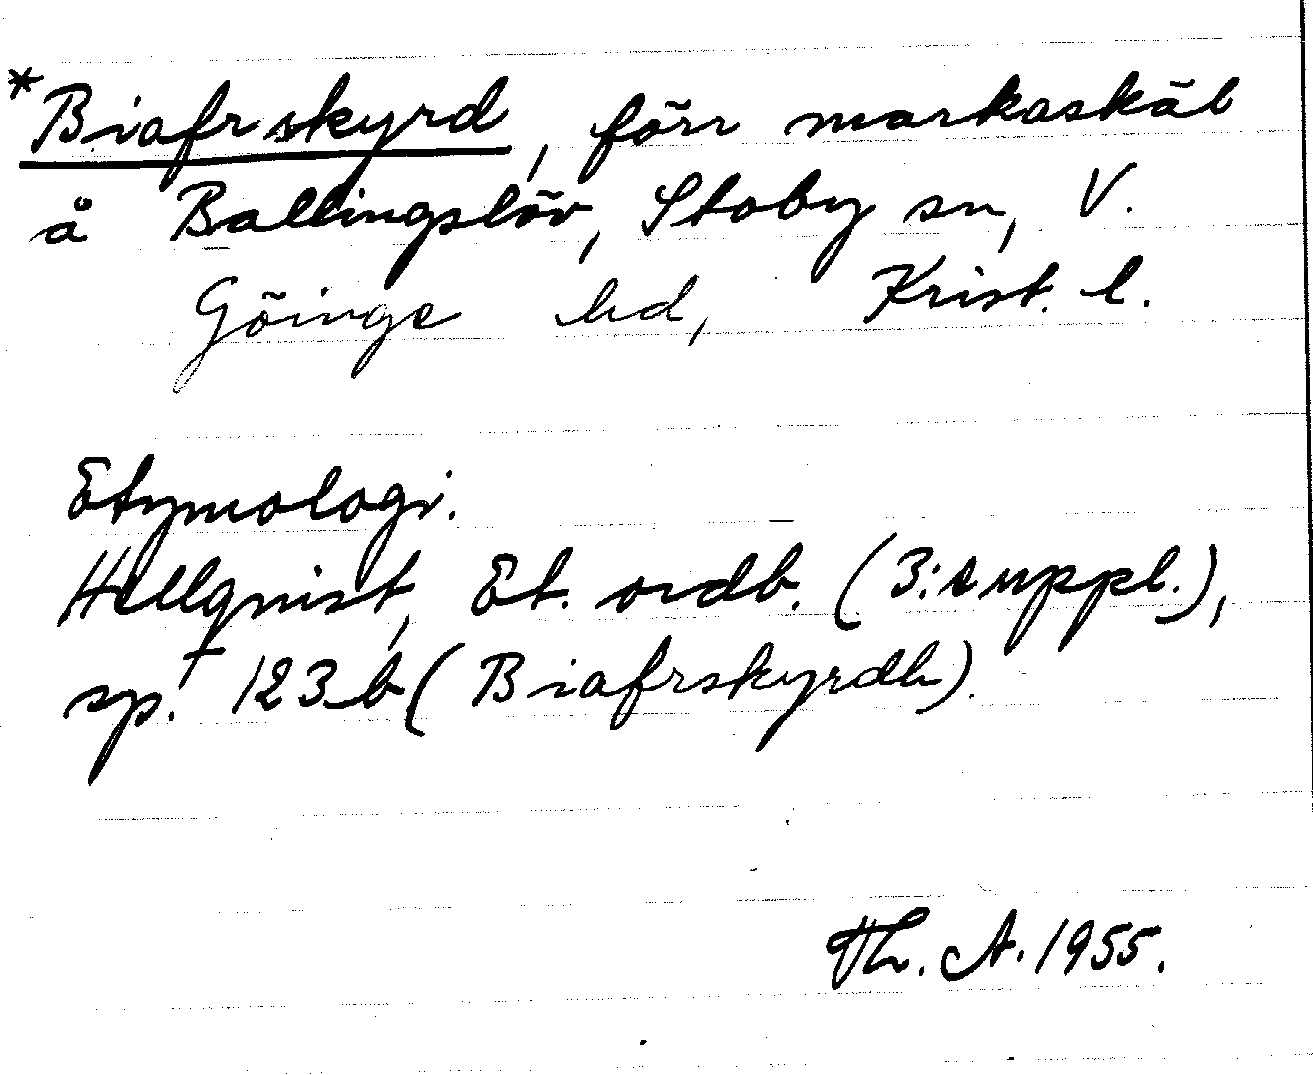 *Biafrskyrd, förr markaskäl
å Ballingslöv, Stoby sn, V.
Göinge hd, Krist. l.
Etymologi.
Hellqnist, Et. ordb. (3: suppl.),
sp. 123 b (Biafrskyrdh).
Th. A. 1955.